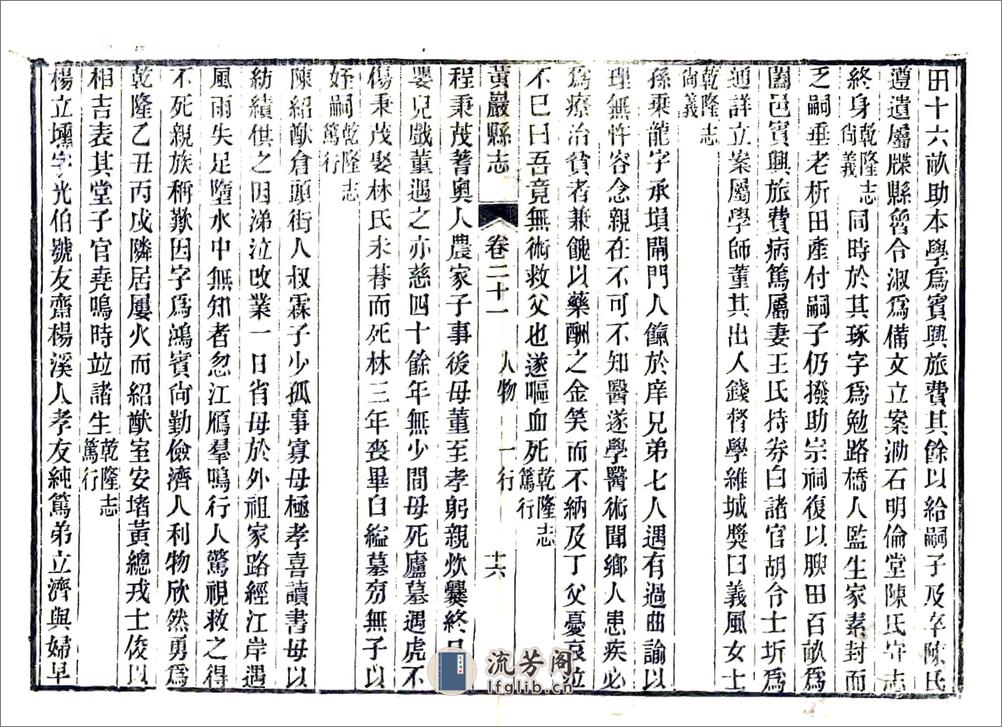 田十六畝助本學爲賓興旅費其餘以給嗣子及卒陳氏
遵遺屬牒縣曾令淑爲備文立案泐石明倫堂陳氏守志
終身乾隆志尙義 同時於其琢字爲勉路橋人監生家素封而
乏嗣垂老析田產付嗣子仍撥助宗祠復以腴田百畝爲
闔邑賓興旅費病篤屬妻王氏持券白諸官胡令士圻爲
通詳立案屬學師董其出入錢督學維城獎曰義風女士
乾隆志尙義
孫乘龍字承塤閈門人餼於庠兄弟七人遇有過曲諭以
理無忤容念親在不可不知醫遂學醫術聞鄉人患疾必
爲療治貧者兼餽以藥酬之金笑而不納及丁父憂哀泣
不已曰吾竟無術救父也遂嘔血死乾隆志篤行
黃巖縣志 卷二十一 人物 一行 十六
程秉茂蓍奧人農家子事後母董至孝躬親炊爨終日
嬰兒戲董遇之亦慈四十餘年無少間母死廬墓遇虎不
傷秉茂娶林氏未朞而死林三年喪畢自縊墓旁無子以
姪嗣乾隆志篤行
陳紹猷倉頭街人叔霖子少孤事寡母極孝喜讀書母以
紡績供之因涕泣改業一日省母於外祖家路經江岸遇
風雨失足墮水中無知者忽江雁羣鳴行人驚視救之得
不死親族稱歎因字爲鴻賓尙勤儉濟人利物欣然勇爲
乾隆乙丑丙戌隣居屢火而紹猷室安堵黃總戎士俊以
相吉表其堂子官堯鳴時竝諸生乾隆志篤行
楊立壎字光伯號友齋楊溪人孝友純篤弟立濟與婦早
流芳阁
lfglib.cn